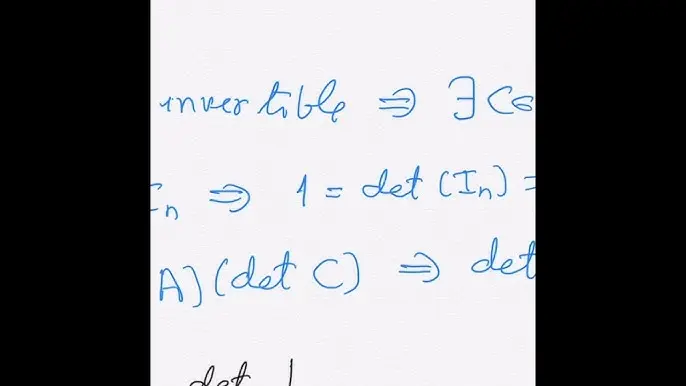 invertible ⇒ ∃ C
n ⇒ 1 = det (Iₙ) =
A)(det C) ⇒ det
det